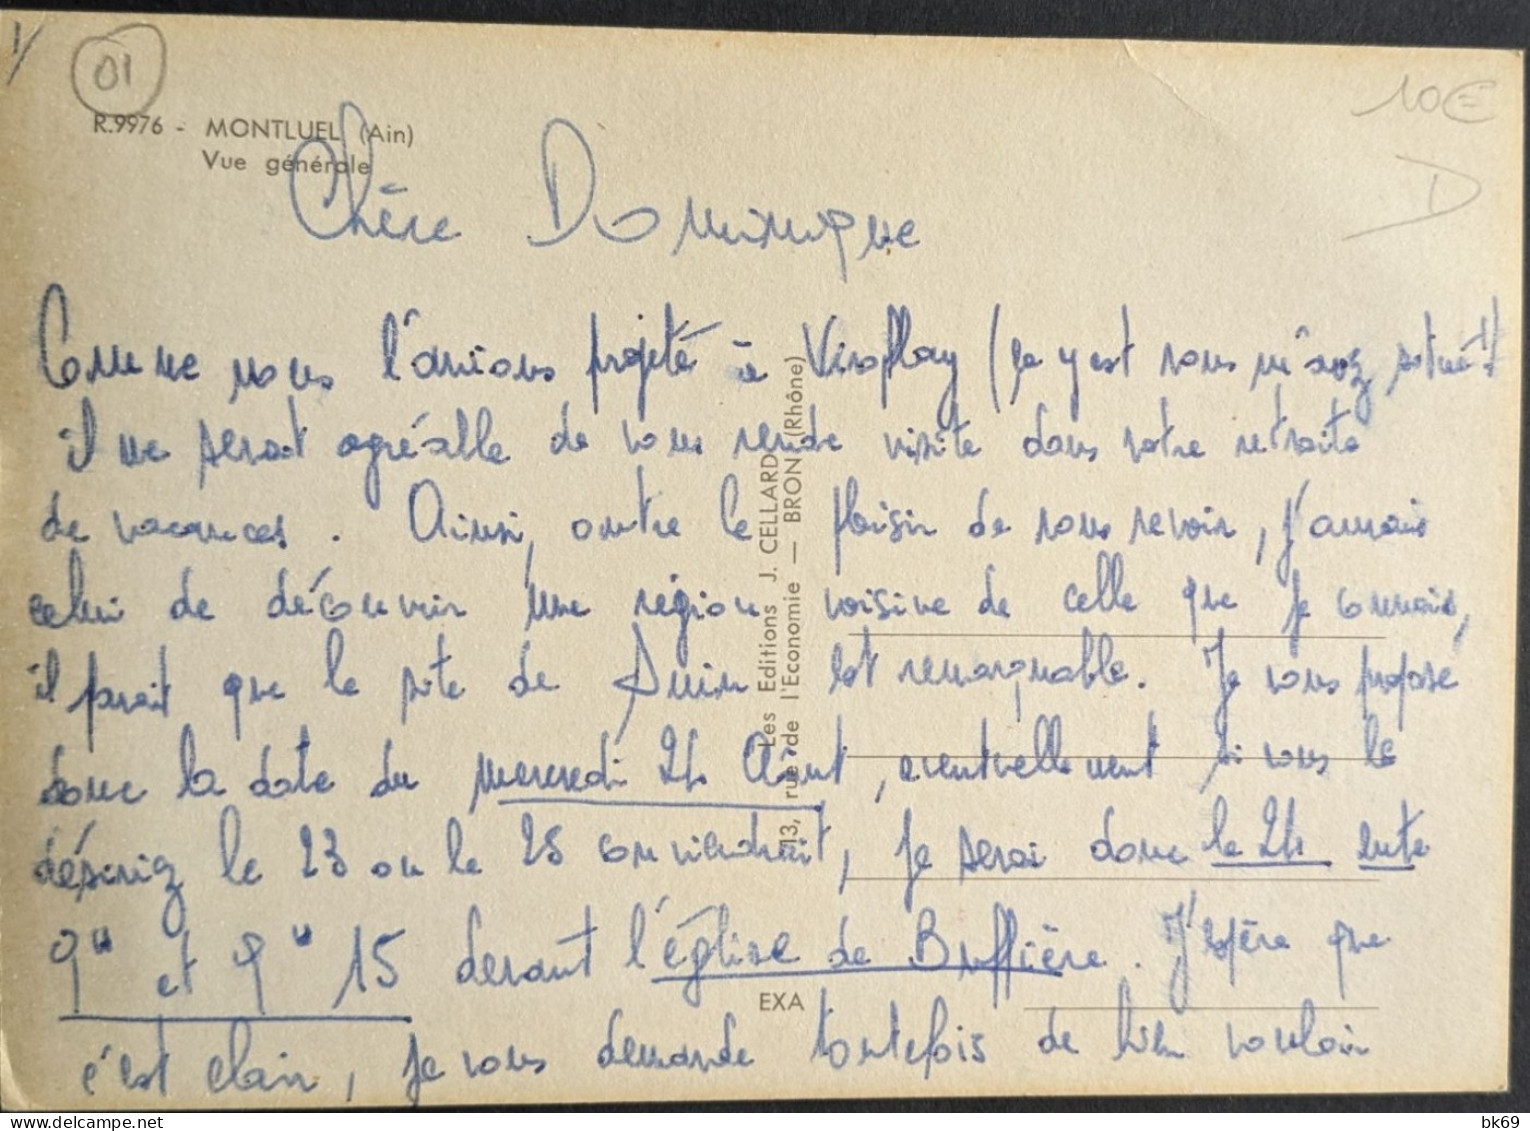 1/
01
10€
D
R.9976 - MONTLUEL (Ain)
Vue générale
Chère Dominique
Comme nous l'avions projeté à Viroflay (ça y est vous m'avez situé!)
il me serait agréable de vous rendre visite dans votre retraite
de vacances. Ainsi, outre le plaisir de vous revoir, j'aurais
celui de découvrir une région voisine de celle que je connais,
il parait que le site de est remarquable. Je vous propose
donc la date du mercredi 24 Août, éventuellement si vous le
désiriez le 23 ou le 25 conviendrait, je serai donc le 24 entre
9" et 9" 15 devant l'église de Buffière. J'espère que
c'est clair, je vous demande toutefois de bien vouloir
Les Editions J. CELLARD
13, rue de l'Economie — BRON (Rhône)
EXA
bk69